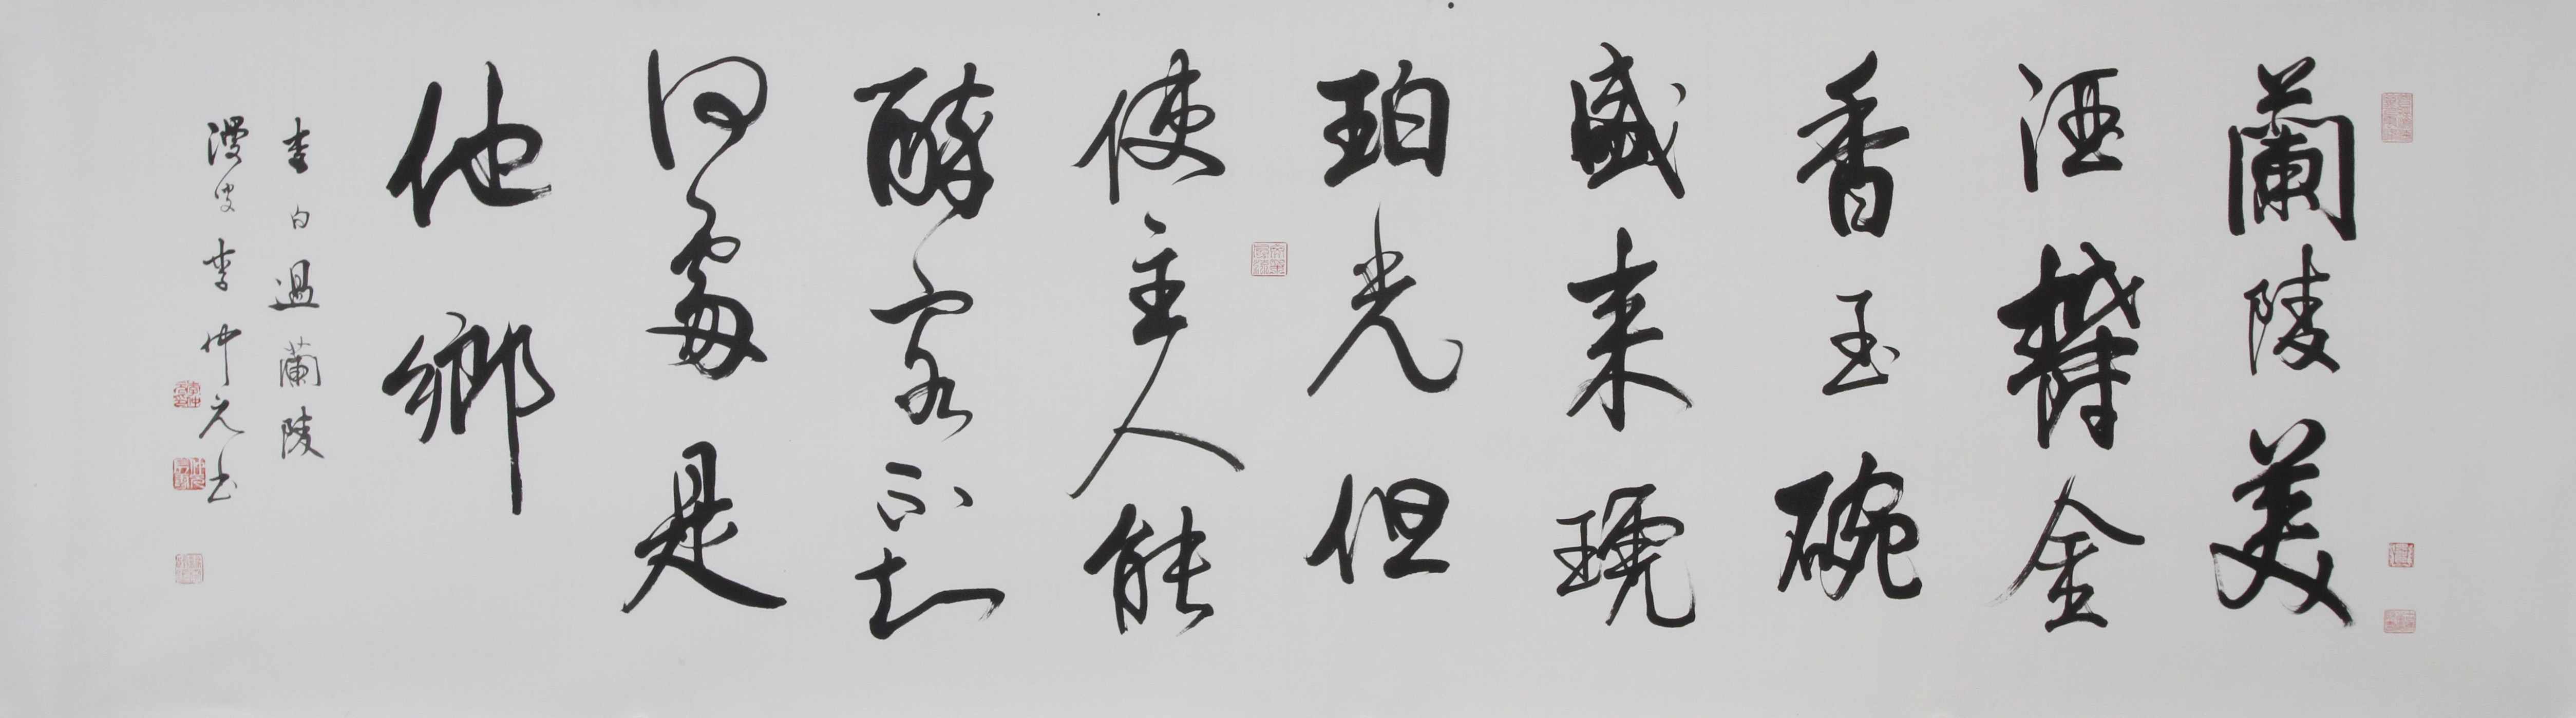 蘭陵美
酒鬱金
香玉碗
盛来琥
珀光但
使主人
能
醉客不知
何處是
他鄉
李白過蘭陵
漫叟李仲元书